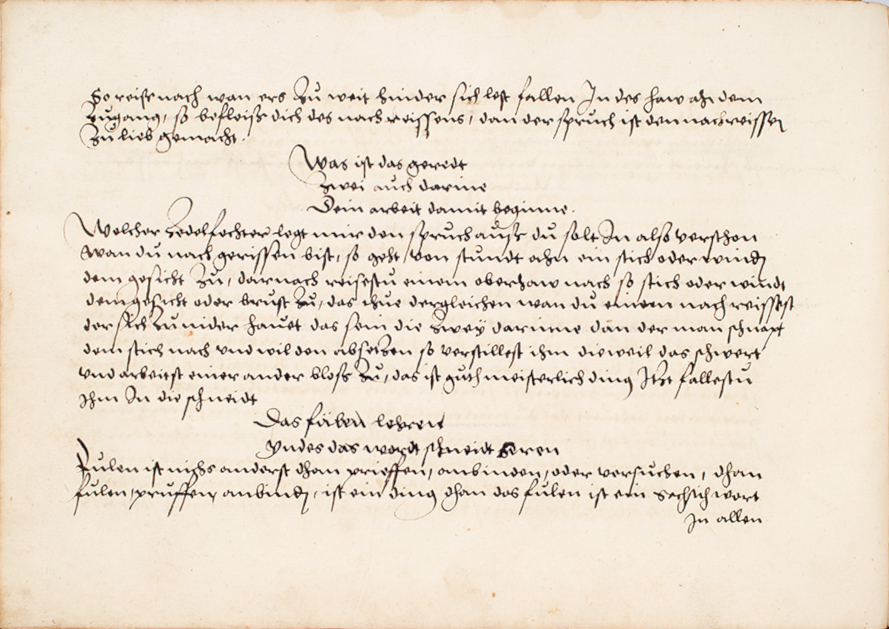 So reise nach wan ers zu weit hinder sich lest fallen In des haw ahn dem
zugang, so befleiss dich des nachreissens, dan der spruch ist dem nachreissen
zu lieb gemacht.
Was ist das geredt
zwei auch darine
Dein arbeit damit beginne.
Welcher zedelfechter legt mir den spruch auss du solt In also verstehen
wan du nach gerissen bist, so geht von stundt ahn ein stich oder winden
dem gesicht zu, darnach reisestu einem oberhaw nach so stich oder windt
dem gesicht oder brust zu, das thue dergleichen wan du einem nach reissest
der sich zu nider hauet das sein die zwey darinne dan der man schnapt
dem stich nach und wil den absetzen so verstillest ihm die weil das schwert
und arbeitst einer ander bloss zu, das ist guth meisterlich ding Itzt fallestu
ihm In die schneidt
Das fülen lehren
Yndes das wordt schneidt seren
Fülen ist nichs anderst dhan prieffen, anbinden, oder versuchen, dhan
fülen, prüffen, anbinden, ist ein ding dhan das fülen ist ein Sechsich wort
In allen